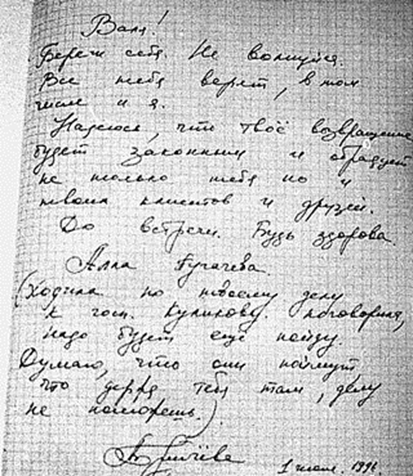 Валя!
Береги себя. Не волнуйся.
Все тебя верят, в том
числе и я.
Надеюсь, что твоё возвращение
будет законным и обрадует
не только тебя но и
твоих клиентов и друзей.
До встречи. Будь здорова.
Алла Пугачева.
(Ходила по твоему делу
к госп. Куликову. поговорила,
надо будет ещё пойду.
Думаю, что они поймут
что держа тебя там, делу
не поможешь.)
1 1996.